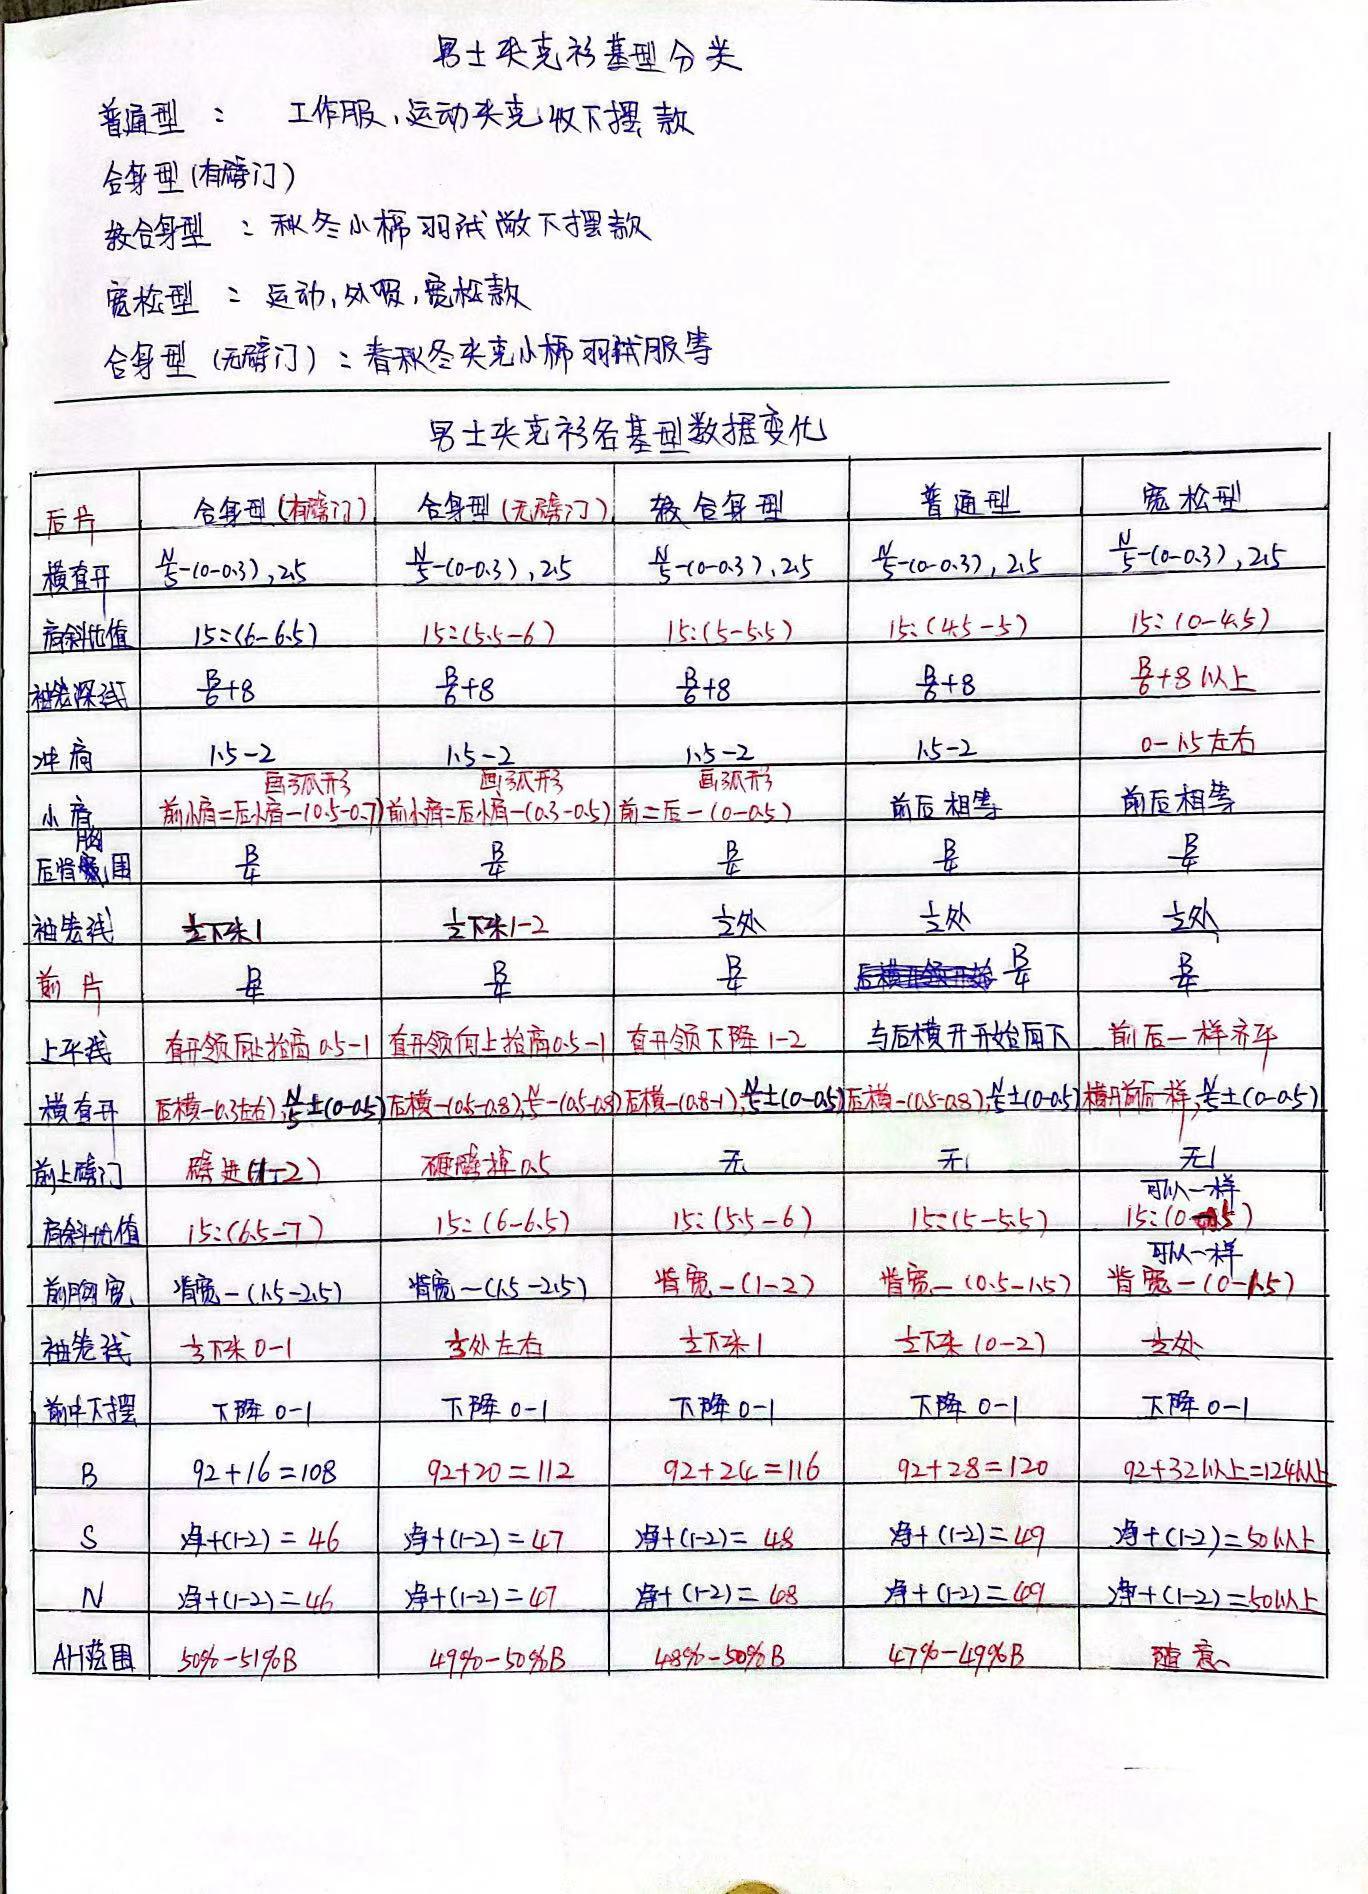 男士夹克衫基型分类
普通型 : 工作服,运动夹克,收下摆款
合身型(有劈门)
较合身型 : 秋冬小棉羽绒敞下摆款
宽松型 : 运动,休闲,宽松款
合身型 (无劈门) : 春秋冬夹克小棉羽绒服等
男士夹克衫各基型数据变化
后片 合身型(有劈门) 合身型(无劈门) 较合身型 普通型 宽松型
横直开 N/5-(0-0.3), 2.5 N/5-(0-0.3), 2.5 N/5-(0-0.3), 2.5 N/5-(0-0.3), 2.5 N/5-(0-0.3), 2.5
肩斜比值 15:(6-6.5) 15:(5.5-6) 15:(5-5.5) 15:(4.5-5) 15:(0-4.5)
袖笼深线 B/6+8 B/6+8 B/6+8 B/6+8 B/6+8以上
冲肩 1.5-2 1.5-2 1.5-2 1.5-2 0-1.5左右
画弧形 画弧形 画弧形
小肩 前小肩=后小肩-(0.5-0.7) 前小肩=后小肩-(0.3-0.5) 前=后-(0-0.5) 前后相等 前后相等
后背胸围 B/4 B/4 B/4 B/4 B/4
袖笼线 1/2下来1 1/2下来1-2 1/2处 1/2处 1/2处
前片 B/4 B/4 B/4 B/4 B/4
上平线 直开领向上抬高0.5-1 直开领向上抬高0.5-1 直开领下降1-2 与后横开开始向下 前后一样齐平
横直开 后横-0.3左右, N/5±(0-0.5) 后横-(0.5-0.8), N/5-(0.5-0.8) 后横-(0.8-1), N/5±(0-0.5) 后横-(0.5-0.8), N/5±(0-0.5) 横开前后一样, N/5±(0-0.5)
前上劈门 劈进(1-2) 硬劈掉0.5 无 无 无
可以一样
肩斜比值 15:(6.5-7) 15:(6-6.5) 15:(5.5-6) 15:(5-5.5) 15:(0-5)
可以一样
前胸宽 背宽-(1.5-2.5) 背宽-(1.5-2.5) 背宽-(1-2) 背宽-(0.5-1.5) 背宽-(0-1.5)
袖笼线 1/3下来0-1 1/3处左右 1/2下来1 1/2下来(0-2) 1/2处
前中下摆 下降0-1 下降0-1 下降0-1 下降0-1 下降0-1
B 92+16=108 92+20=112 92+24=116 92+28=120 92+32以上=124以上
S 净+(1-2)=46 净+(1-2)=47 净+(1-2)=48 净+(1-2)=49 净+(1-2)=50以上
N 净+(1-2)=46 净+(1-2)=47 净+(1-2)=48 净+(1-2)=49 净+(1-2)=50以上
AH范围 50%-51%B 49%-50%B 48%-50%B 47%-49%B 随意